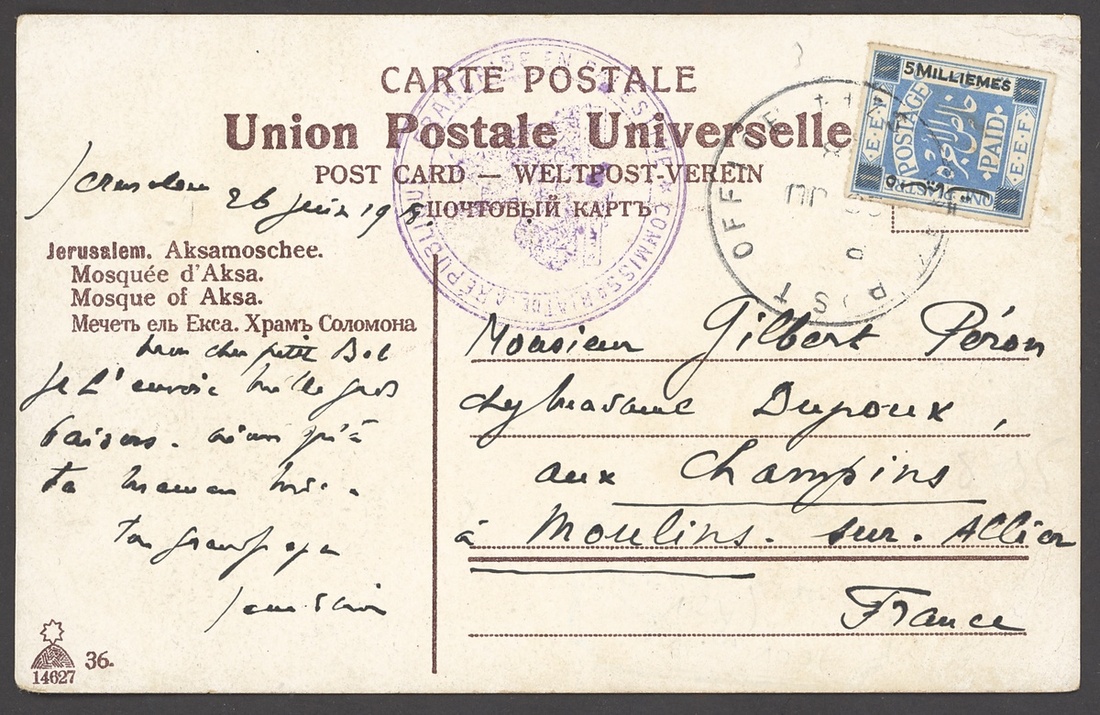 CARTE POSTALE
Union Postale Universelle
POST CARD — WELTPOST-VEREIN
ПОЧТОВЫЙ КАРТЪ
5 MILLIEMES
E.E.F.
POSTAGE
PAID
E.E.F.
POST OFFICE
COMMISSARIAT DE LA REPUBLIQUE FRANÇAISE EN PALESTINE
Jerusalem 26 juin 19
Jerusalem. Aksamoschee.
Mosquée d'Aksa.
Mosque of Aksa.
Мечеть ель Екса. Храмъ Соломона
mon cher petit Bob
je t'envoie mille gros
baisers.
ta maman
ton grand papa
Monsieur Gilbert Péron
chez madame Dupoux,
aux Champins
à Moulins. sur. Allier
France
14627 36.